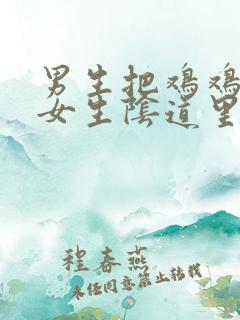 男生把鸡鸡
女生陰道里
程春燕
未经同意禁止转载